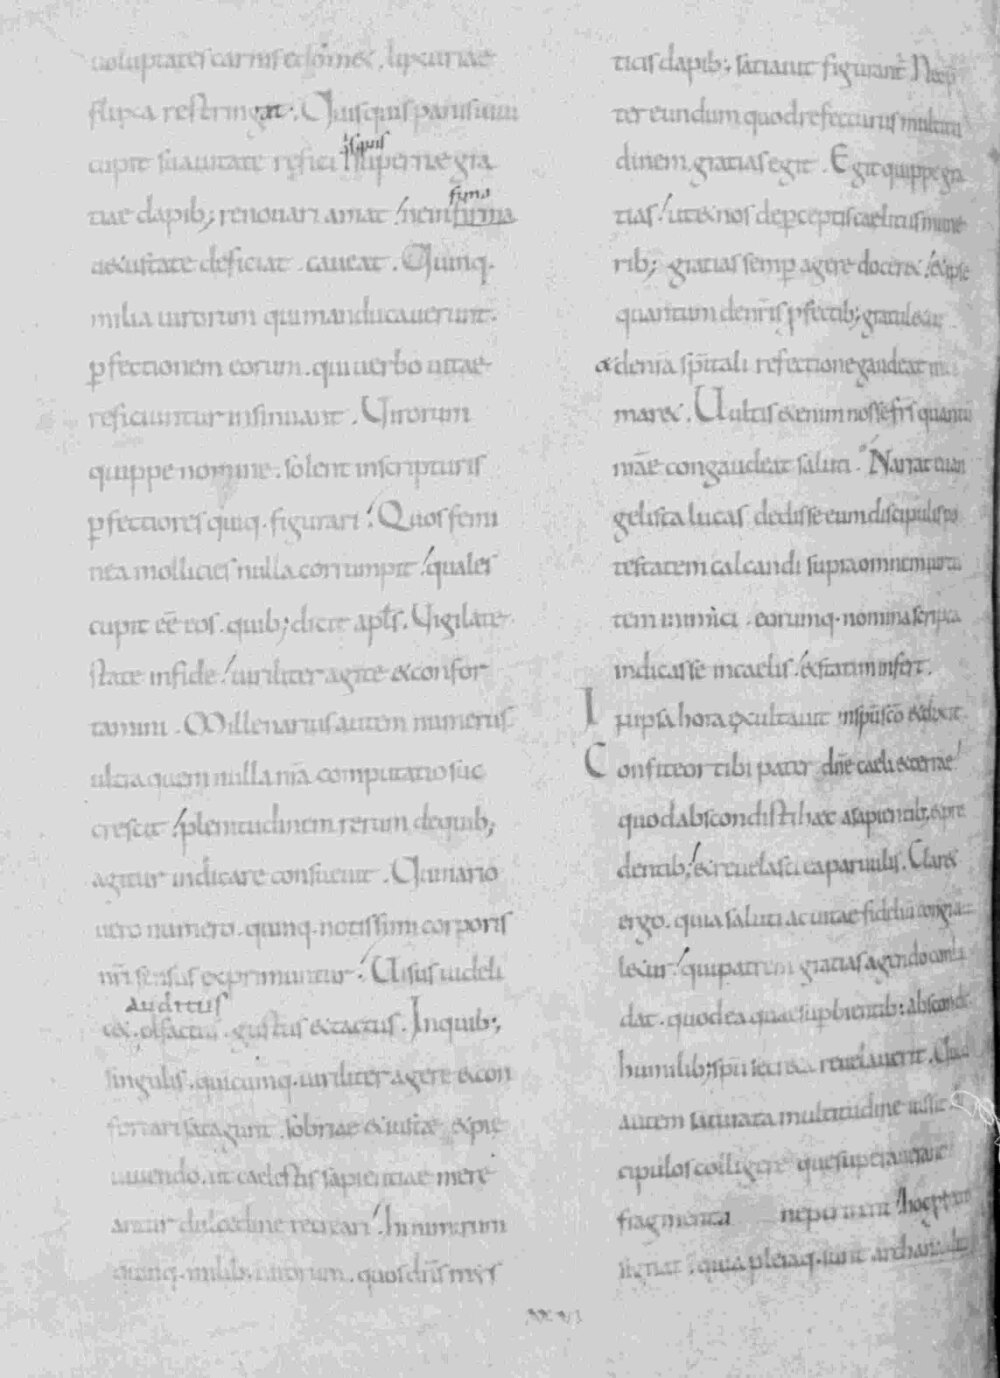 uoluptates carnis edom&. luxuriae
fluxa restringat. Quisquis panis uiui
cupit suauitate refici / supernae gra
isquis
tiae dapib; renouari amat / ne infirma
firma
uetustate deficiat caueat. Quinq.
milia uirorum qui manducauerunt.
pfectionem eorum. qui uerbo uitae
reficiuntur insinuant. Uirorum
quippe nomine. solent in scripturis
pfectiores quiq. figurari / Quos femi
nea mollicies nulla corrumpit / quales
cupit eē eos. quib; dicit apls. Vigilate
state in fide / uiriliter agite & confor
tamini. Millenarius autem numerus
ultra quem nulla nra computatio suc
crescit / plenitudinem rerum de quib;
agitur indicare consueuit. Quinario
uero numero. quinq. notissimi corporis
nri sensus exprimuntur / Uisus uideli
auditus
c&. olfactus. gustus & tactus. In quib;
singulis. quicunq. uiriliter agere & con
fortari satagunt. sobriae & iuste & pie
uiuendo. ut caelestis sapientiae mere
antur dulcedine recreari / hi numerum
quinq. milib. uirorum. quos dns mys
ticis dapib; satiauit figurant. Nec p̄
ter eundum quod refecturus multitu
dinem. gratias egit. Egit quippe gra
tias / ut & nos de perceptis caelitus mune
rib; gratias semp agere docer& / & ipse
quantum de nris pfectib; gratuletur
& de nra spitali refectione gaudeat
mar&. Uultis & enim nosse frs quantu
nrae congaudeat saluti. Narrat euan
gelista lucas dedisse eum discipulis po
testatem calcandi supra omnem uirtu
tem inimici. eorumq. nomina scripta
indicasse in caelis / & statim infert.
In ipsa hora exultauit in spu sco & dixit.
Confiteor tibi pater dne caeli & terrae /
quod abscondisti haec a sapientib; & pru
dentib; / & reuelasti ea paruulis. Clar&
ergo. quia saluti ac uitae fideliu congra
letur / qui patrem gratias agendo conlau
dat. quod ea quae supbientib; abscondit
humilib; spu secreta reuelauerit. Quod
autem saturata multitudine iussit
cipulos colligere que superauerant
fragmenta ne perirent / hoc pfecto
signat / quia pleraq. sunt archana
XXVI